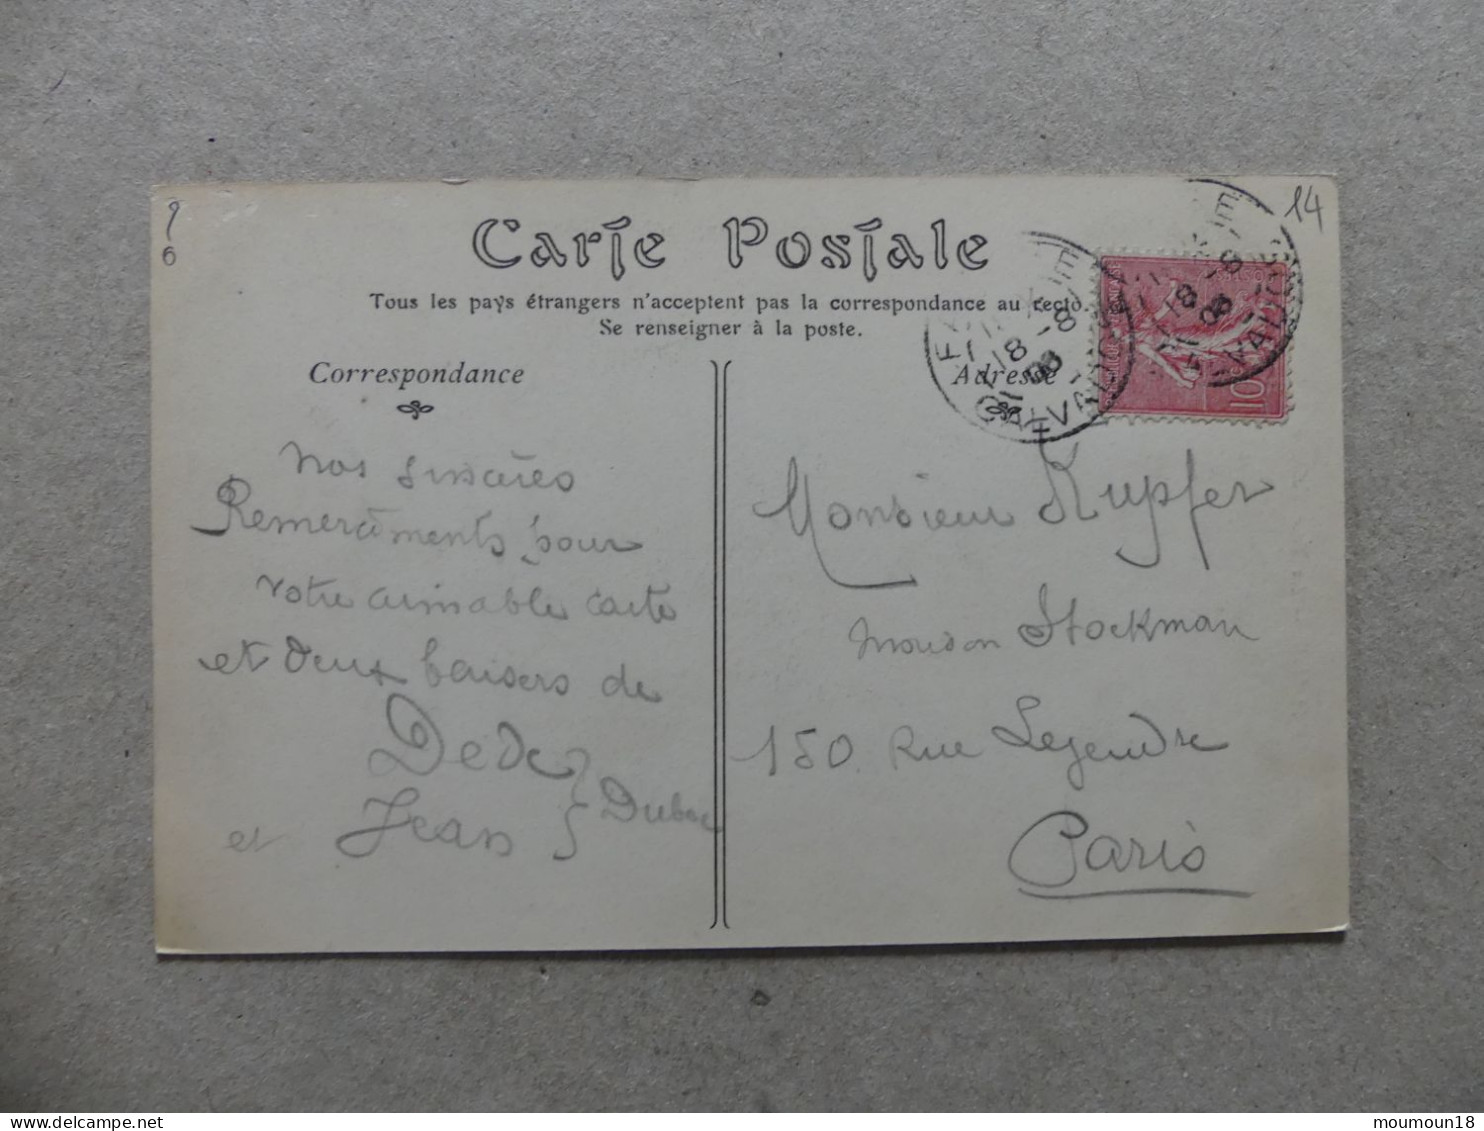 14
Carte Postale
Tous les pays étrangers n'acceptent pas la correspondance au recto.
Se renseigner à la poste.
Correspondance
Adresse
18 -8
CALVADOS
10
nos sincères
Remerciments pour
votre aimable carte
et deux baisers de
Dede
et Jean } Dubac
Monsieur Kupfer
maison Stockman
150 Rue Legendre
Paris
moumoun18